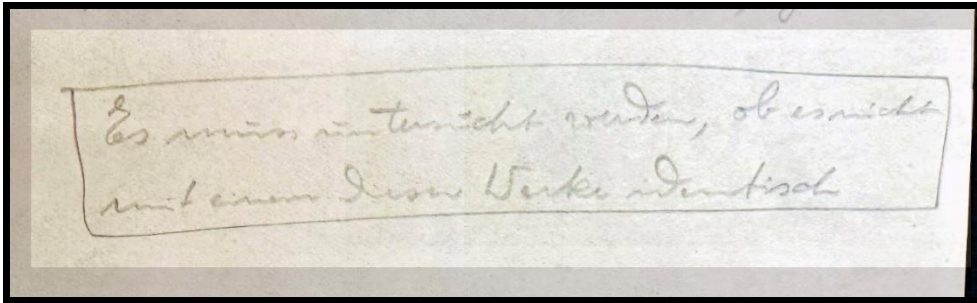 Es muss untersucht werden, ob es nicht
mit einem dieser Werke identisch